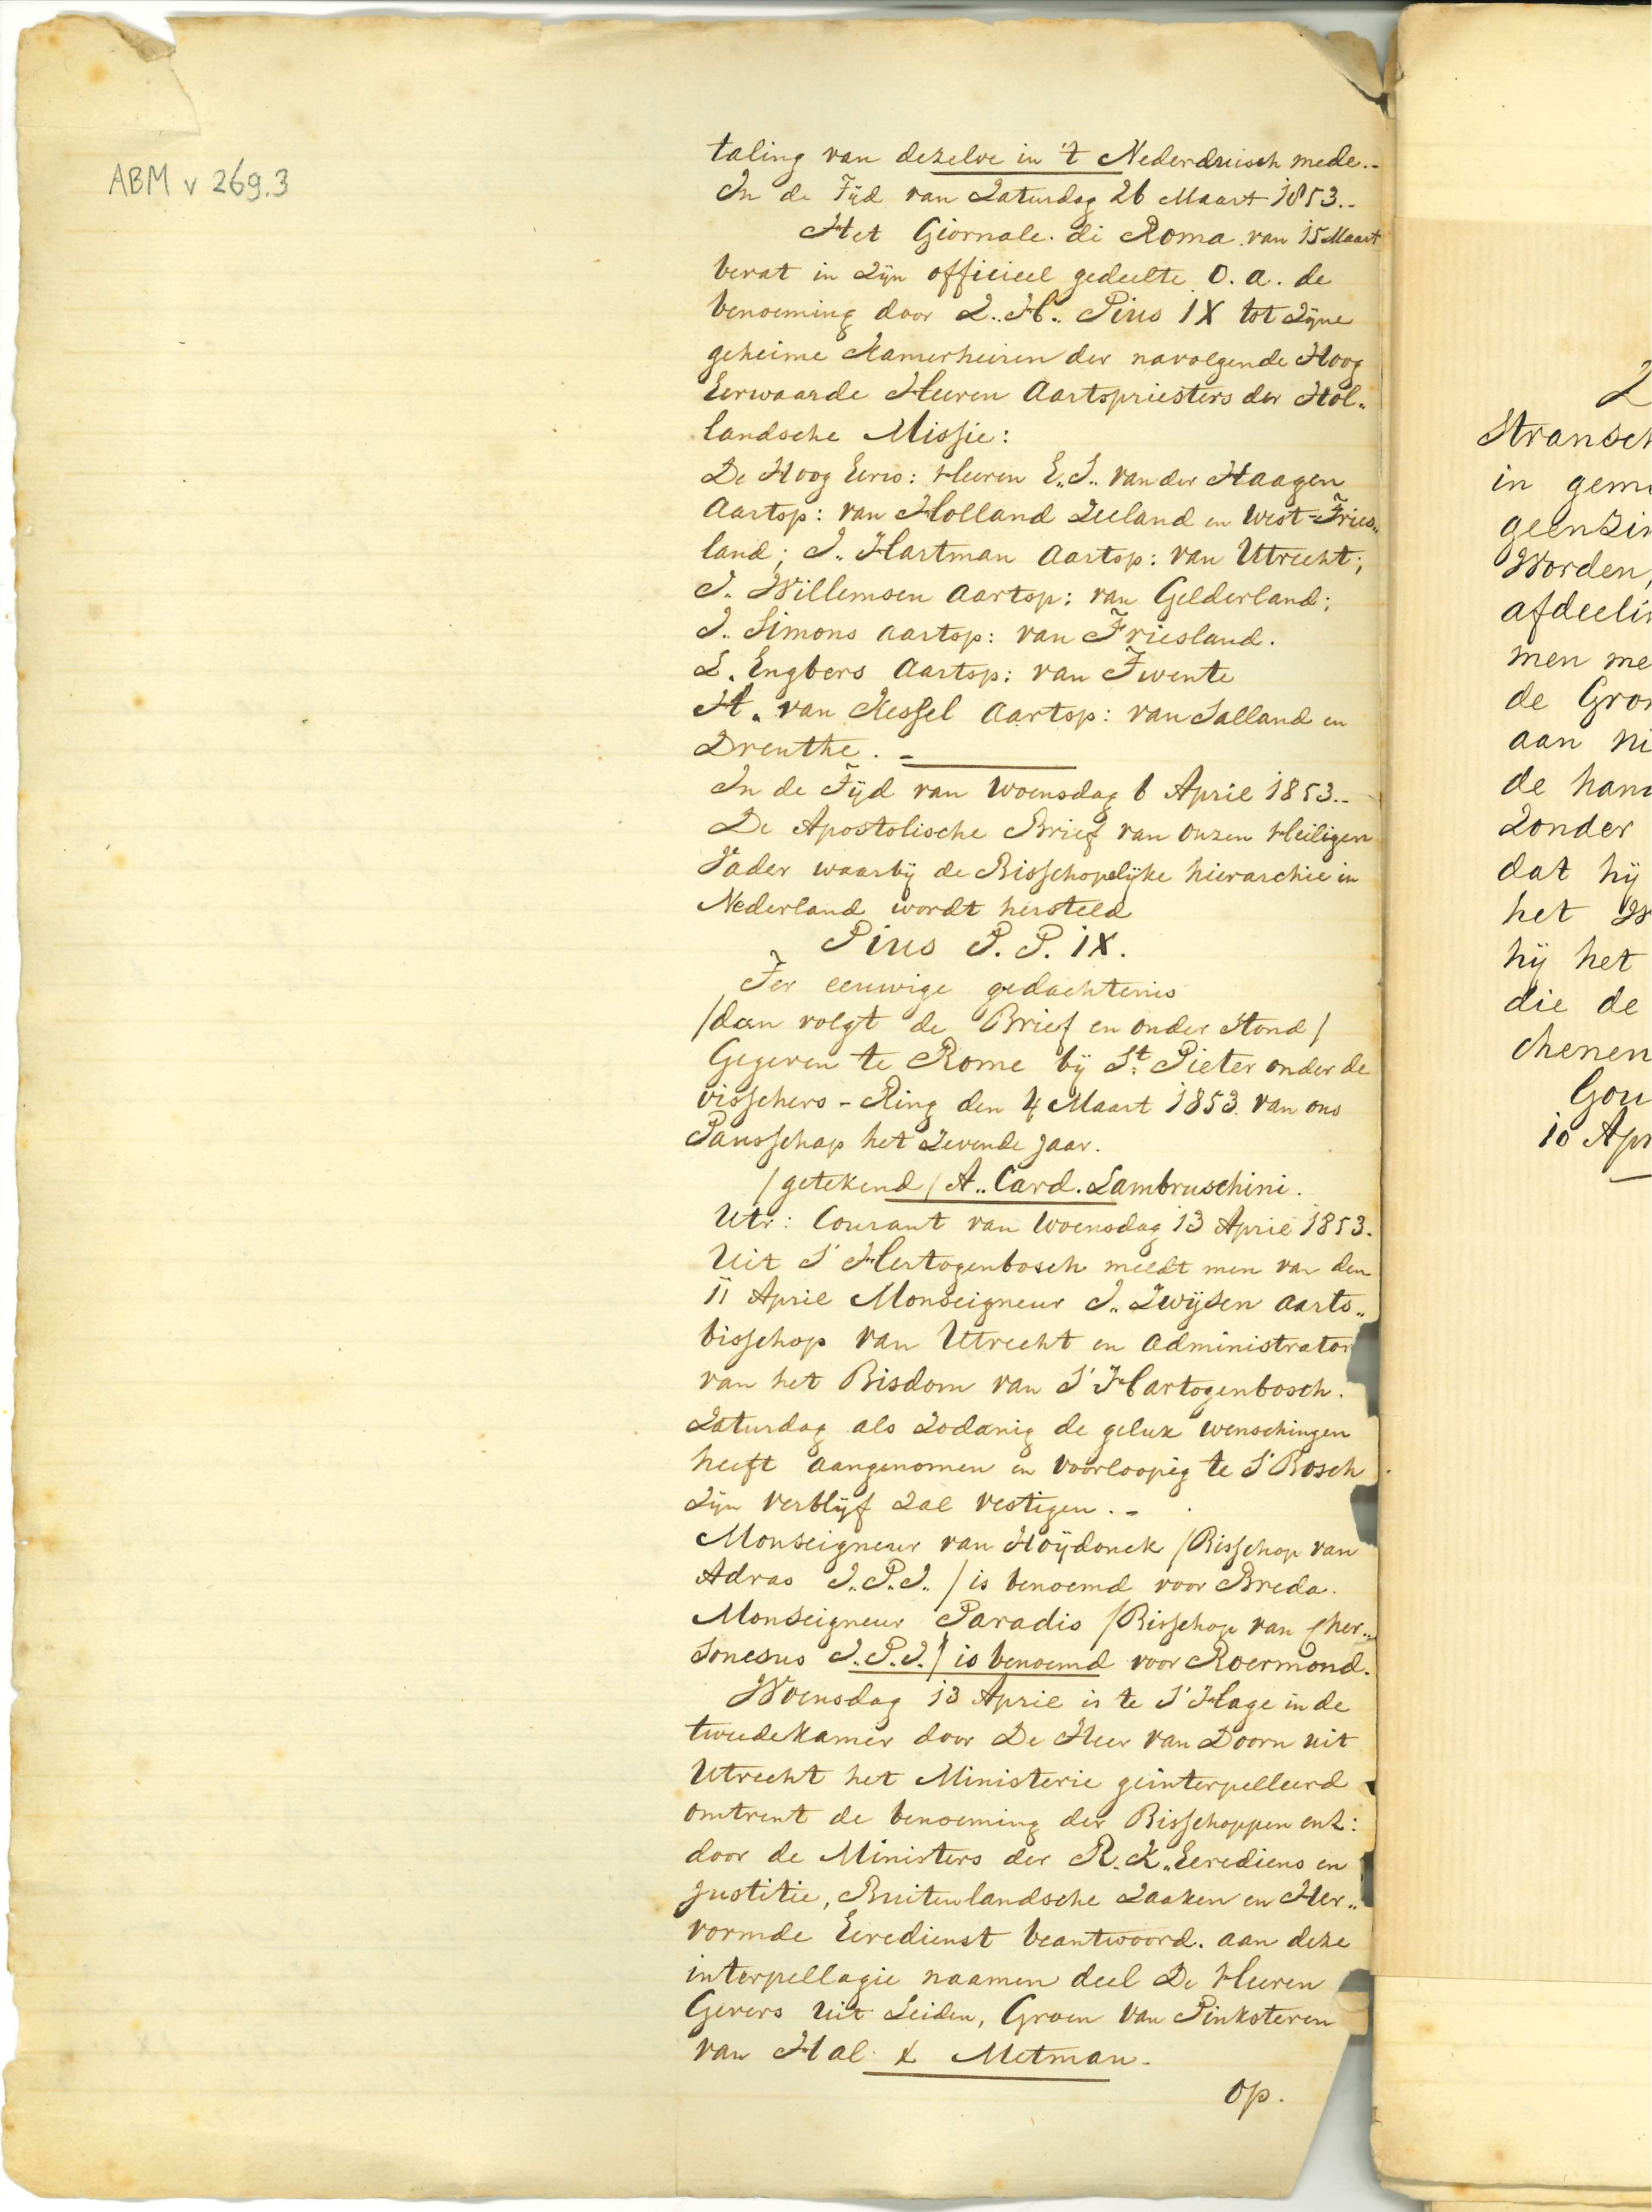 ABM v 269.3
taling van dezelve in 't Nederduisch mede.-
In de Tijd van Zaturdag 26 Maart 1853.-
Het Giornale di Roma van 15 Maart
bevat in Zijn officieel gedeelte O. a. de
benoeming door Z.. H.. Pius IX tot Zijne
geheime Kamerheiren der navolgende Hoog
Eerwaarde Heeren Aartspriesters der Hol„
landsche Missie:
De Hoog Eerw: Heeren E.. S.. van der Haagen
Aartsp: van Holland Zeeland en West-Fries„
land; J.. Hartman Aartsp: van Utrecht;
J.. Willemsen Aartsp: van Gelderland;
J.. Simons Aartsp: van Friesland.
L. Engbers Aartsp: van Twente
H. van Kessel Aartsp: van Salland en
Drenthe. -
In de Tijd van Woensdag 6 April 1853.-
De Apostolische Brief van Onzen Heiligen
Vader waarbij de Bisschopelijke hierarchie in
Nederland wordt hersteld
Pius P. P. IX.
Ter eeuwige gedachtenis
/dan volgt de Brief en onder Stond/
Gegeven te Rome bij St. Pieter onder de
visschers-Ring den 4 Maart 1853. van ons
Pausschap het Zevende Jaar.
/getekend/ A.. Card. Lambruschini.
Utr: Courant van Woensdag 13 April 1853.
Uit S' Hertogenbosch meldt men van den
11 April Monseigneur J.. Zwijsen Aarts„
bisschop van Utrecht en Administrator
van het Bisdom van S' Hartogenbosch.
Zaturdag als Zodanig de geluk wenschingen
heeft aangenomen en voorloopig te S' Bosch
Zijn verblijf Zal vestigen.-
Monseigneur van Hoijdonck /Bisschop van
Adras J.. P.. J.. / is benoemd voor Breda.
Monseigneur Paradis /Bisschop van Cher„
sonesus J.. P.. J. / is benoemd voor Roermond.
Woensdag 13 April is te S' Hage in de
tweede Kamer door De Heer van Doorn uit
Utrecht het Ministerie geinterpelleerd
omtrent de benoeming der Bisschoppen enz:
door de Ministers der R. K. Eerediens en
Justitie, Buitenlandsche Zaaken en Her„
vormde Eeredienst beantwoord. aan deze
interpellagie naamen deel De Heeren
Gevers uit Leiden, Groen van Pinksteren
van Hal & Metman.
op.
Stransch
in geme
geenzin
Worden,
afdeelin
men me
de Gron
aan ni
de hand
Zonder
dat hij
het W
hij het
die de
chenen
Gou
10 Apr